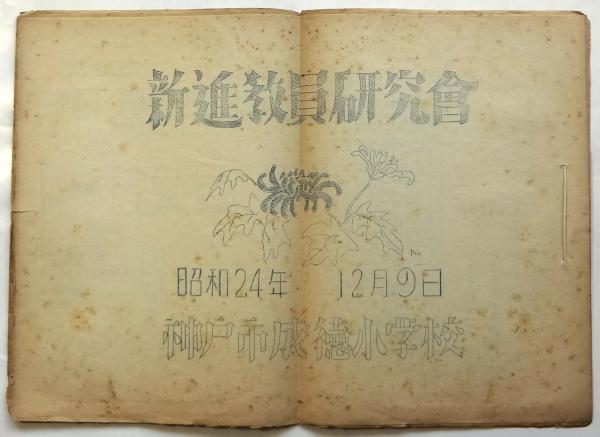 新進教員研究會
昭和24年 12月9日
神戸市成德小学校